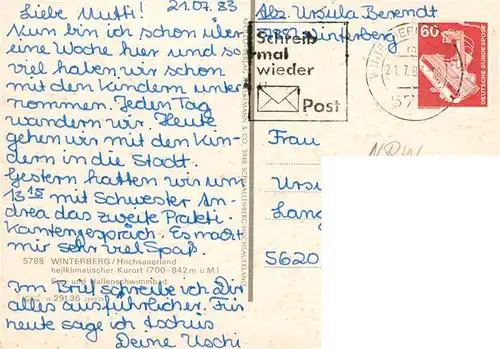 Liebe Mutti! 21.07.83
Nun bin ich schon über
eine Woche hier und so
viel haben wir schon
mit den Kindern unter
nommen. Jeden Tag
wandern wir. Heute
gehen wir mit den Kin-
dern in die Stadt.
Gestern hatten wir um
13 15 mit Schwester An-
drea das zweite Prakti-
kantengespräch. Es macht
mir sehr viel Spaß.
5788 WINTERBERG/Hochsauerland
heilklimatischer Kurort (700-842 m ü.M.)
Frei- und Hallenschwimmbad
291.36
Im Brief schreibe ich Dir
alles ausführlicher. Für
heute sage ich tschüs
Deine Uschi
Abs. Ursula Berendt
Winterberg
Schreib
mal
wieder
Post
WINTERBERG
21.7.8
57
60
DEUTSCHE BUNDESPOST
NRW
Frau
Ursu
Lang
5620